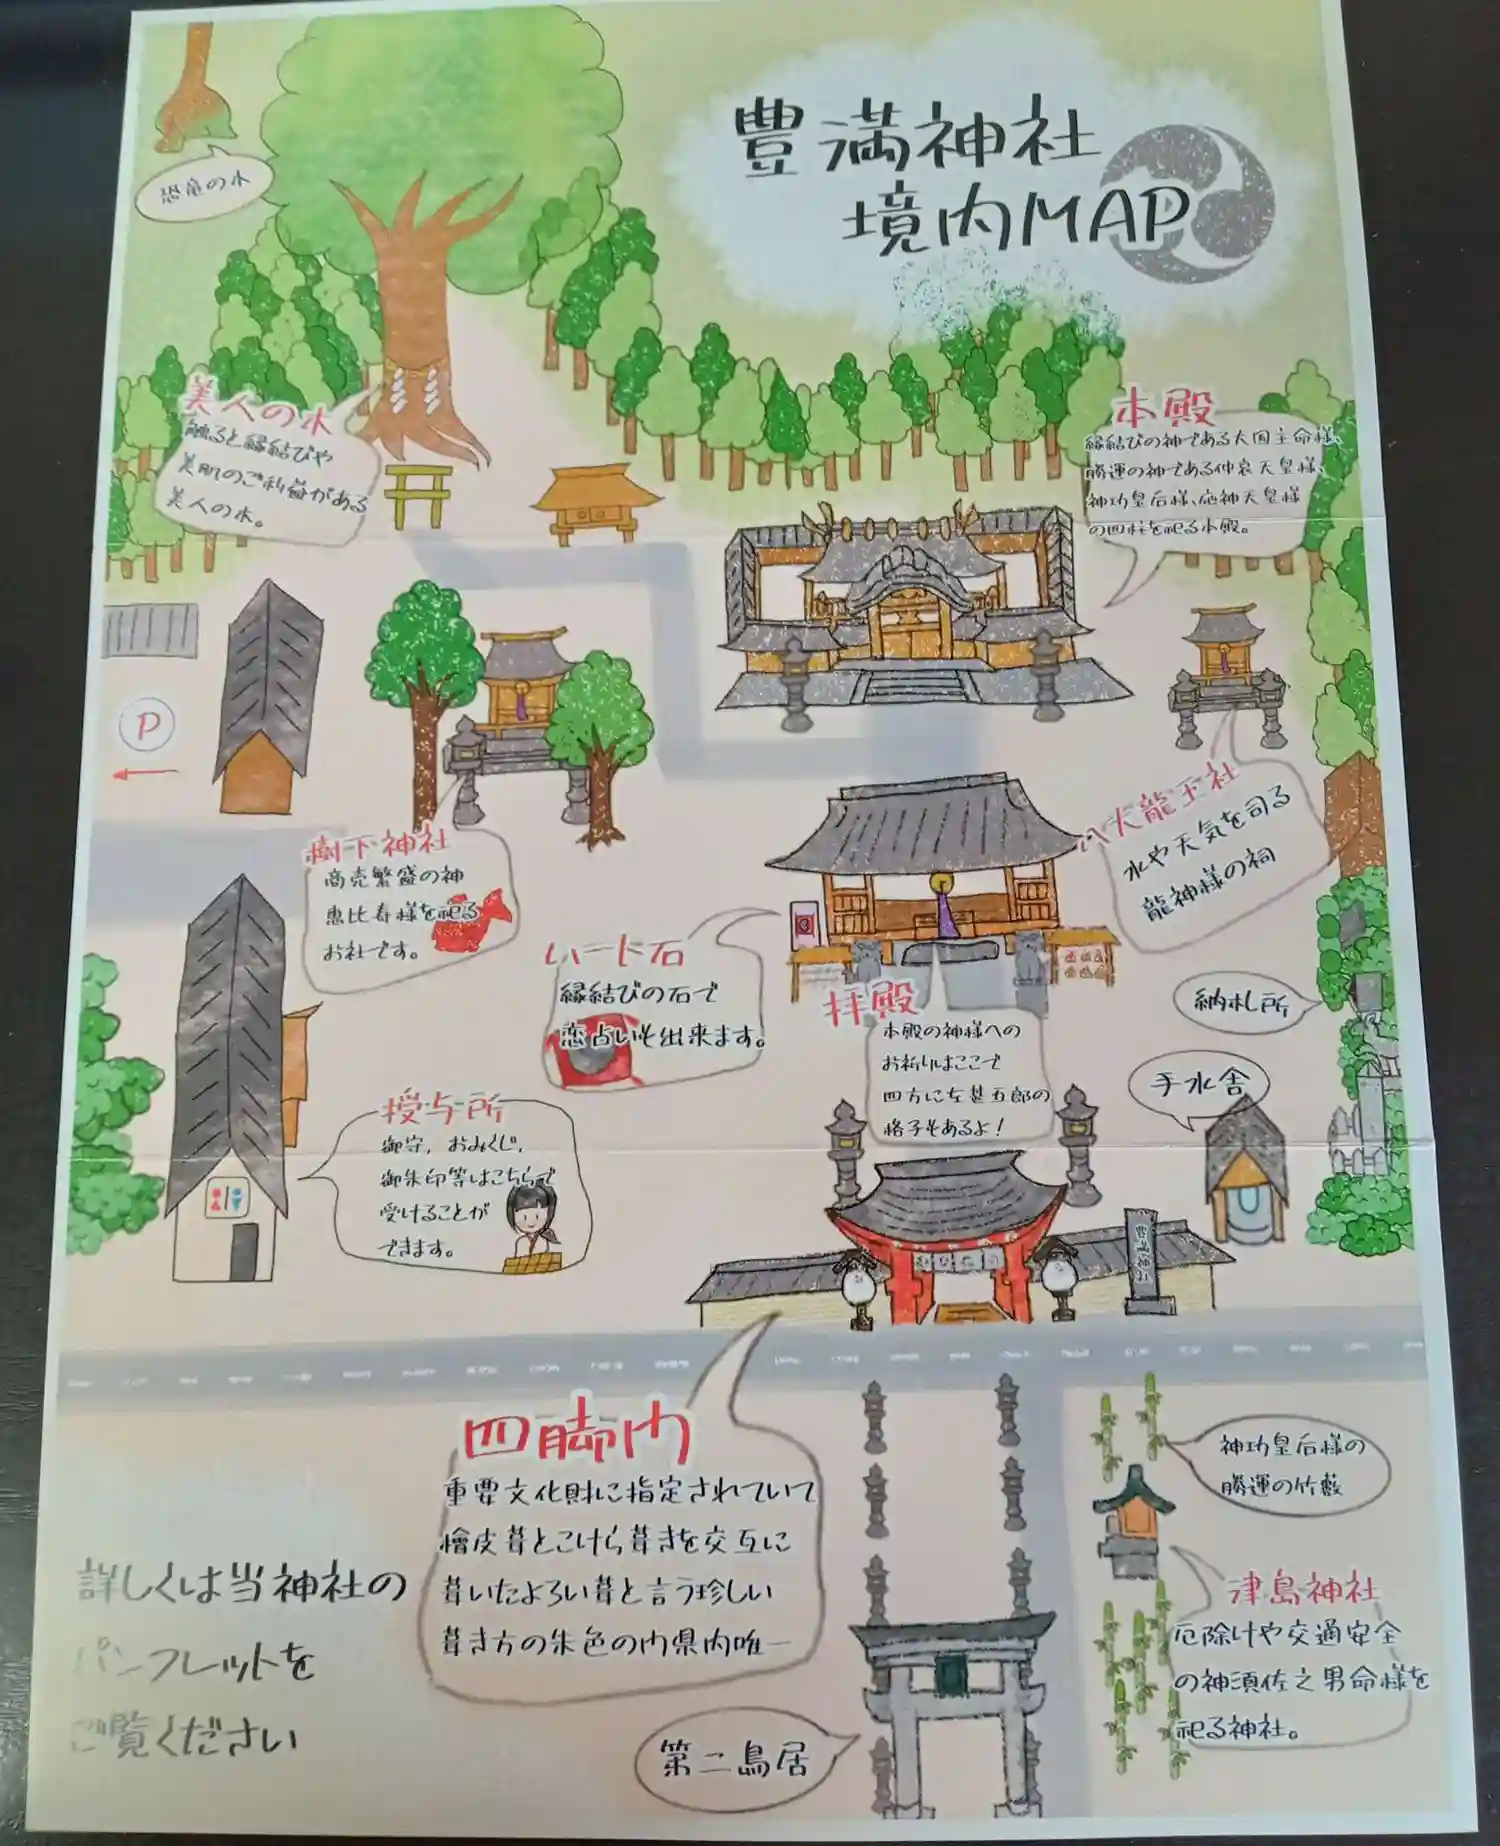 豊満神社
境内MAP
恐竜の木
美人の木
触ると縁結びや
美肌のご利益がある
美人の木。
本殿
縁結びの神である大国主命様、
勝運の神である仲哀天皇様、
神功皇后様、応神天皇様
の四柱を祀る本殿。
P
樹下神社
商売繁盛の神
恵比寿様を祀る
お社です。
八大龍王社
水や天気を司る
龍神様の祠
ハート石
縁結びの石で
恋占いも出来ます。
拝殿
本殿の神様への
お祈りはここで
四方に左甚五郎の
格子もあるよ！
納札所
手水舎
授与所
御守、おみくじ、
御朱印等はこちらで
受けることが
できます。
豊満神社
四脚門
重要文化財に指定されていて
檜皮葺とこけら葺きを交互に
葺いたよろい葺と言う珍しい
葺き方の朱色の門県内唯一
神功皇后様の
勝運の竹藪
津島神社
厄除けや交通安全
の神須佐之男命様を
祀る神社。
第二鳥居
詳しくは当神社の
パンフレットを
ご覧ください